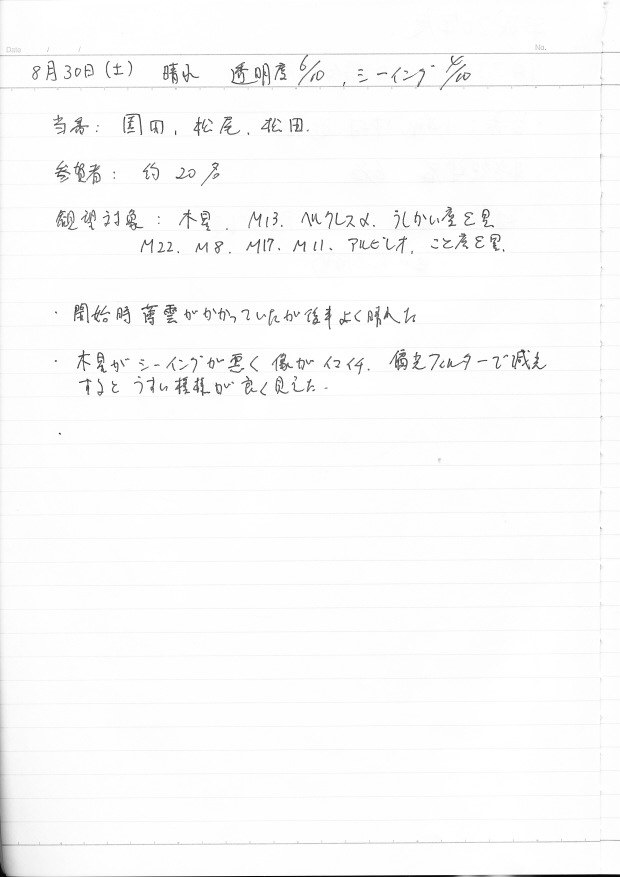 Date / / No.
8月30日(土) 晴れ 透明度 6/10 , シーイング 4/10
当番: 園田, 松尾, 松田.
参加者: 約 20名
観望対象: 木星, M13. ヘルクレスα. うしかい座ε星
M22. M8. M17. M11. アルビレオ, こと座ε星.
・開始時 薄雲がかかっていたが後半よく晴れた
・木星がシーイングが悪く 像がイマイチ. 偏光フィルターで減光
するとうすい模様が良く見えた.
・